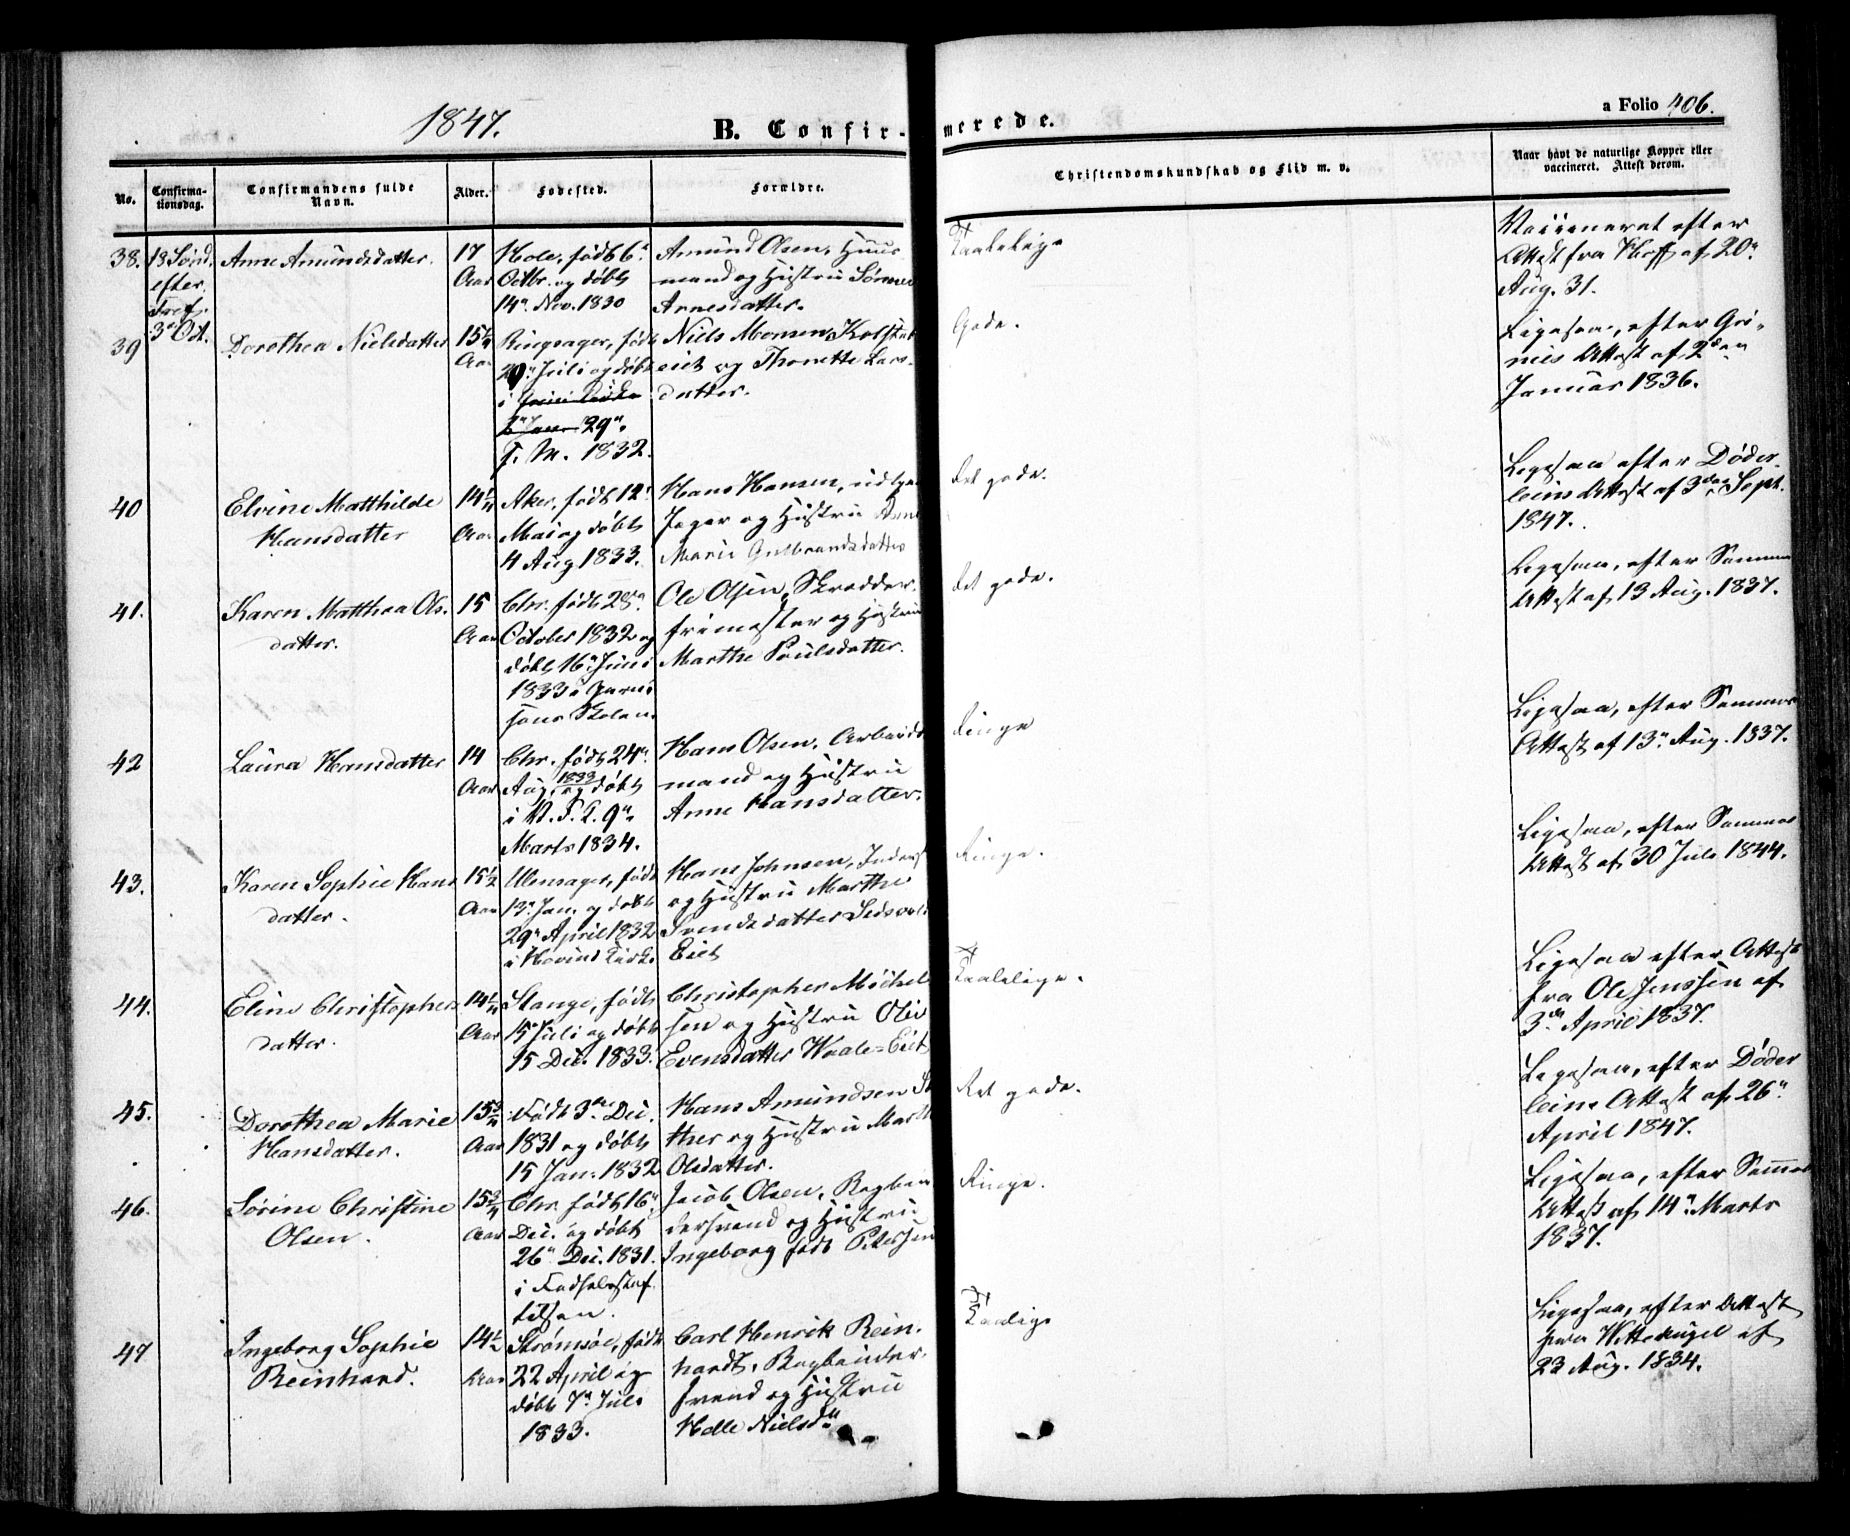 1847.
B. Confir-
merede.
a Folio 406.
No.
Confirma-
tionsdag.
Confirmandens fulde
Navn.
Alder.
Fødested.
Forældre.
Christendomskundskab og Flid m. v.
Naar havt de naturlige Kopper eller
vaccineret. Attest derom.
38.
18 Sønd.
efter
Tref.
3die Oct.
Anne Amundsdatter.
17
Aar
Hole, født 6te
Octbr. og døbt
14de Nov. 1830
Amund Olsen, Huus
mand og Hustru
Arnesdatter.
Taalelige
Vaccineret efter
Attest fra Thoff af 20de
Aug. 31.
39
Dorothea Nielsdatter
15 1/4
Aar
Ringsager, født
Juli og døbt
i
29de
s. M. 1832.
Niels Monsen Kolstad
eiet og Thonette Lars-
datter.
Gode.
Ligesaa, efter
Attest af 2den
Januar 1836.
40
Elvine Matthilde
Hansdatter
14 1/4
Aar
Aker, født 12te
Mai og døbt
4 Aug 1833.
Hans Hansen,
Jæger og Hustru Anne
Marie Gulbrandsdatter
Ret gode.
Ligesaa efter Døder
leins Attest af 3die Sept.
1847.
41.
Karen Matthea Ols-
datter.
15
Aar
Chr. født 28de
October 1832 og
døbt 16de Juni
1833 i Garni
sons Skolen.
Ole Olsen, Skrædder
frimester og Hustru
Marthe Poulsdatter.
Ret gode.
Ligesaa, efter Sammes
Attest af 13 Aug. 1837.
42
Laura Hansdatter
14
Aar
Chr. født 24de
Aug. 1833 og døbt
i V. F. K. 9de
Marts 1834.
Hans Olsen, Arbeids
mand og Hustru
Anne Hansdatter.
Ringe
Ligesaa, efter Sammes
Attest af 13de Aug. 1837.
43.
Karen Sophie Hans
datter.
15 1/2
Aar
Ullensager, født
13de Jan. og døbt
29de April 1832
i Hovind Kirke
Hans Johnsen, Inderst
og Hustru Marthe
Svendsdatter
Eiet
Ringe.
Ligesaa, efter Sammes
Attest af 30 Juli 1844.
44.
Eline Christopher
datter.
14 1/4
Aar
Stange, født
15 Juli og døbt
15 Dec. 1833.
Christopher Michel
sen og Hustru Oliv
Evensdatter
Taalelige.
Ligesaa efter Attest
fra Ole Jenssen af
3die April 1837.
45.
Dorothea Marie
Hansdatter.
15 3/4
Aar
Født 3die Dec.
1831 og døbt
15 Jan. 1832
Hans Amundsen
og Hustru Marth
Olsdatter.
Ret gode.
Ligesaa, efter Døder
leins Attest af 26de
April 1847.
46.
Sørine Christine
Olsen.
15 3/4
Aar
Chr. født 16de
Dec. og døbt
26de Dec. 1831.
i Fødselsstif
telsen.
Jacob Olsen, Bogbin
dersvend og Hustru
Ingeborg født Peterssen
Ringe.
Ligesaa, efter Sammes
Attest af 14de Marts
1837.
47
Ingeborg Sophie
Reinhard.
14 1/2
Aar
Strømsøe, født
22 April og
døbt 7de Juli
1833.
Carl Henrik Rein-
hardt, Bogbinder-
svend og Hustru
Helle Nielsdtr
Taalige
Ligesaa, efter Attest
fra Wittekugel af
23 Aug. 1834.